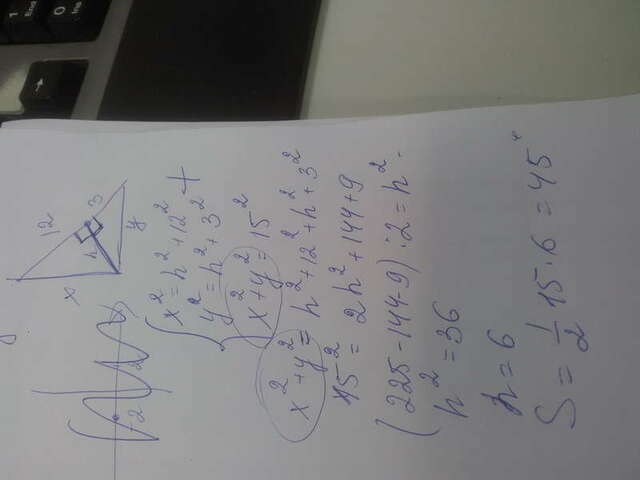 12
3
h
x
y
-2
2
x² = h² + 12²
+
y² = h² + 3²
x² + y² = 15²
x² + y² = h² + 12² + h² + 3²
15² = 2h² + 144 + 9
(225 - 144 - 9) : 2 = h²
h² = 36
h = 6
S = 1/2 15 · 6 = 45
1 End
0 Ins